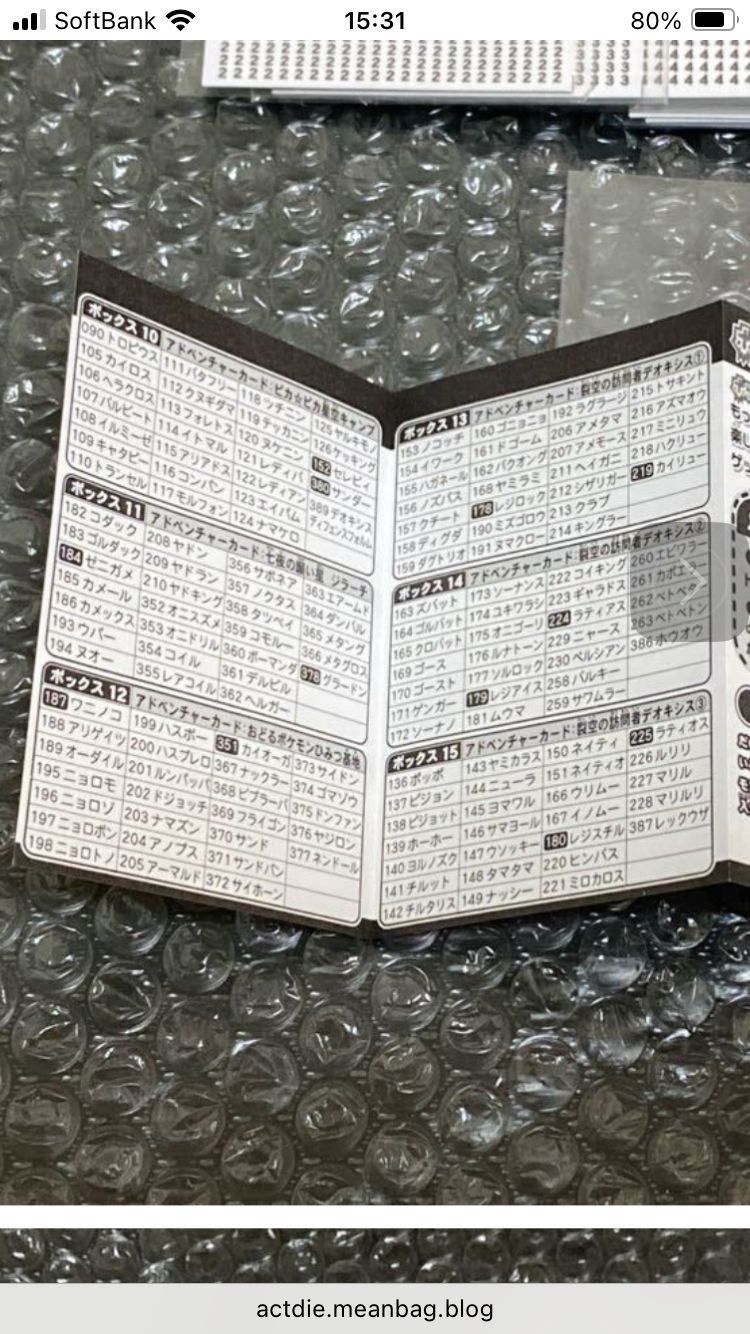 SoftBank 15:31 80%
ボックス 10 アドベンチャーカード:ピカ☆ピカ星空キャンプ
090 トロピウス 111 バタフリー 118 ツチニン 125 ヤルキモノ
105 カイロス 112 クヌギダマ 119 テッカニン 126 ケッキング
106 ヘラクロス 113 フォレトス 120 ヌケニン 152 セレビィ
107 バルビート 114 イトマル 121 レディバ 380 サンダー
108 イルミーゼ 115 アリアドス 122 レディアン 389 デオキシス ディフェンスフォルム
109 キャタピー 116 コンパン 123 エイパム
110 トランセル 117 モルフォン 124 ナマケロ
ボックス 11 アドベンチャーカード:七夜の願い星 ジラーチ
182 コダック 208 ヤドン 356 サボネア 363 エアームド
183 ゴルダック 209 ヤドラン 357 ノクタス 364 ダンバル
184 ゼニガメ 210 ヤドキング 358 タッベイ 365 メタング
185 カメール 352 オニスズメ 359 コモルー 366 メタグロス
186 カメックス 353 オニドリル 360 ボーマンダ 378 グラードン
193 ウパー 354 コイル 361 デルビル
194 ヌオー 355 レアコイル 362 ヘルガー
ボックス 12 アドベンチャーカード:おどるポケモンひみつ基地
187 ワニノコ 199 ハスボー 351 カイオーガ 373 サイドン
188 アリゲイツ 200 ハスブレロ 367 ナックラー 374 ゴマゾウ
189 オーダイル 201 ルンパッパ 368 ビブラーバ 375 ドンファン
195 ニョロモ 202 ドジョッチ 369 フライゴン 376 ヤジロン
196 ニョロゾ 203 ナマズン 370 サンド 377 ネンドール
197 ニョロボン 204 アノプス 371 サンドパン
198 ニョロトノ 205 アーマルド 372 サイホーン
ボックス 13 アドベンチャーカード:裂空の訪問者デオキシス①
153 ノコッチ 160 ゴニョニョ 192 ラグラージ 215 トサキント
154 イワーク 161 ドゴーム 206 アメタマ 216 アズマオウ
155 ハガネール 162 バクオング 207 アメモース 217 ミニリュウ
156 ノズパス 168 ヤミラミ 211 ヘイガニ 218 ハクリュー
157 クチート 178 レジロック 212 シザリガー 219 カイリュー
158 ディグダ 190 ミズゴロウ 213 クラブ
159 ダグトリオ 191 ヌマクロー 214 キングラー
ボックス 14 アドベンチャーカード:裂空の訪問者デオキシス②
163 ズバット 173 ソーナンス 222 コイキング 260 エビワラー
164 ゴルバット 174 ユキワラシ 223 ギャラドス 261 カポエ
165 クロバット 175 オニゴーリ 224 ラティアス 262 ベトベタ
169 ゴース 176 ルナトーン 229 ニャース 263 ベトベトン
170 ゴースト 177 ソルロック 230 ペルシアン 386 ホウオウ
171 ゲンガー 179 レジアイス 258 バルキー
172 ソーナノ 181 ムウマ 259 サワムラー
ボックス 15 アドベンチャーカード:裂空の訪問者デオキシス③
136 ポッポ 143 ヤミカラス 150 ネイティ 225 ラティオス
137 ピジョン 144 ニューラ 151 ネイティオ 226 ルリリ
138 ピジョット 145 ヨマワル 166 ウリムー 227 マリル
139 ホーホー 146 サマヨール 167 イノムー 228 マリルリ
140 ヨルノズク 147 ウソッキー 180 レジスチル 387 レックウザ
141 チルット 148 タマタマ 220 ヒンバス
142 チルタリス 149 ナッシー 221 ミロカロス
actdie.meanbag.blog